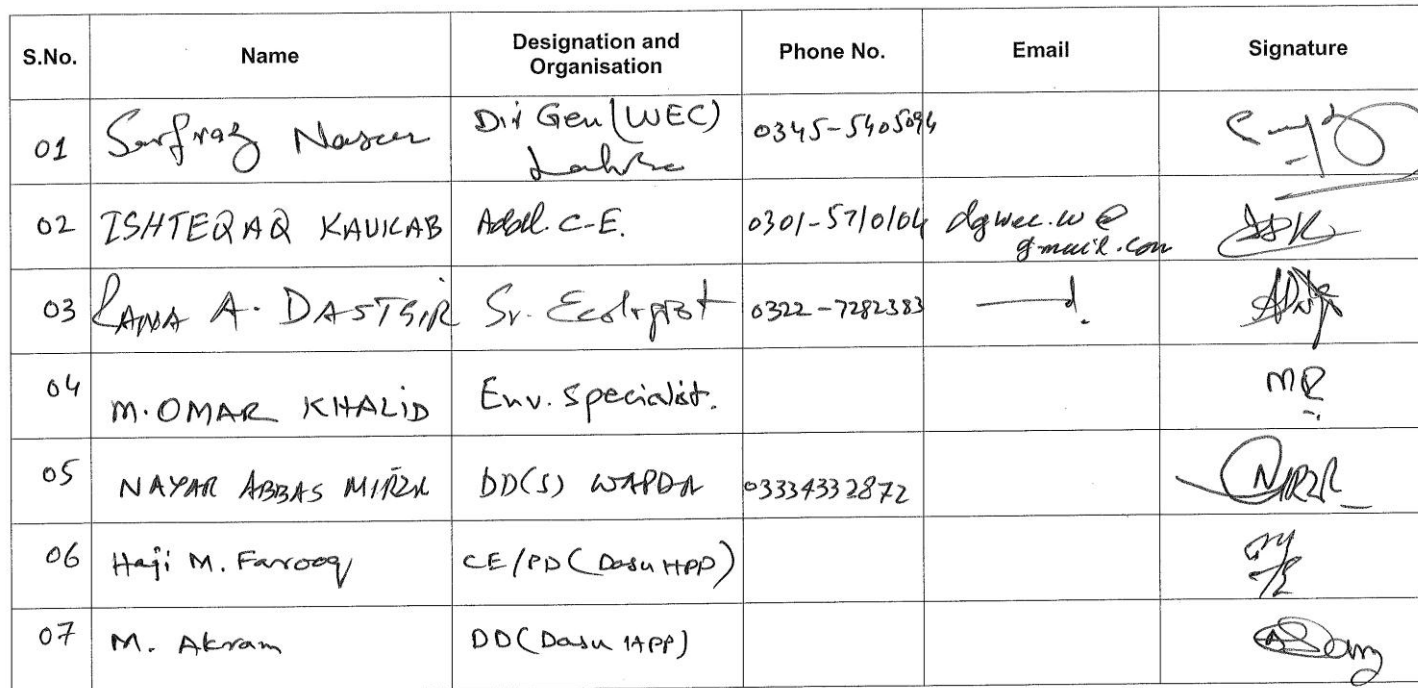 S.No. Name Designation and Organisation Phone No. Email Signature
01 Sarfraz Naseer Dir Gen (WEC) Lahore 0345-5405094
02 ISHTEQAQ KAUKAB Addl. C-E. 0301-5710104 dgwec.w@gmail.com
03 RANA A. DASTGIR Sr. Ecologist 0322-7282383
04 M. OMAR KHALID Env. Specialist.
05 NAYAR ABBAS MIRZA DD(S) WAPDA 03334332872
06 Haji M. Farooq CE/PD (Dasu HPP)
07 M. Akram DD (Dasu HPP)